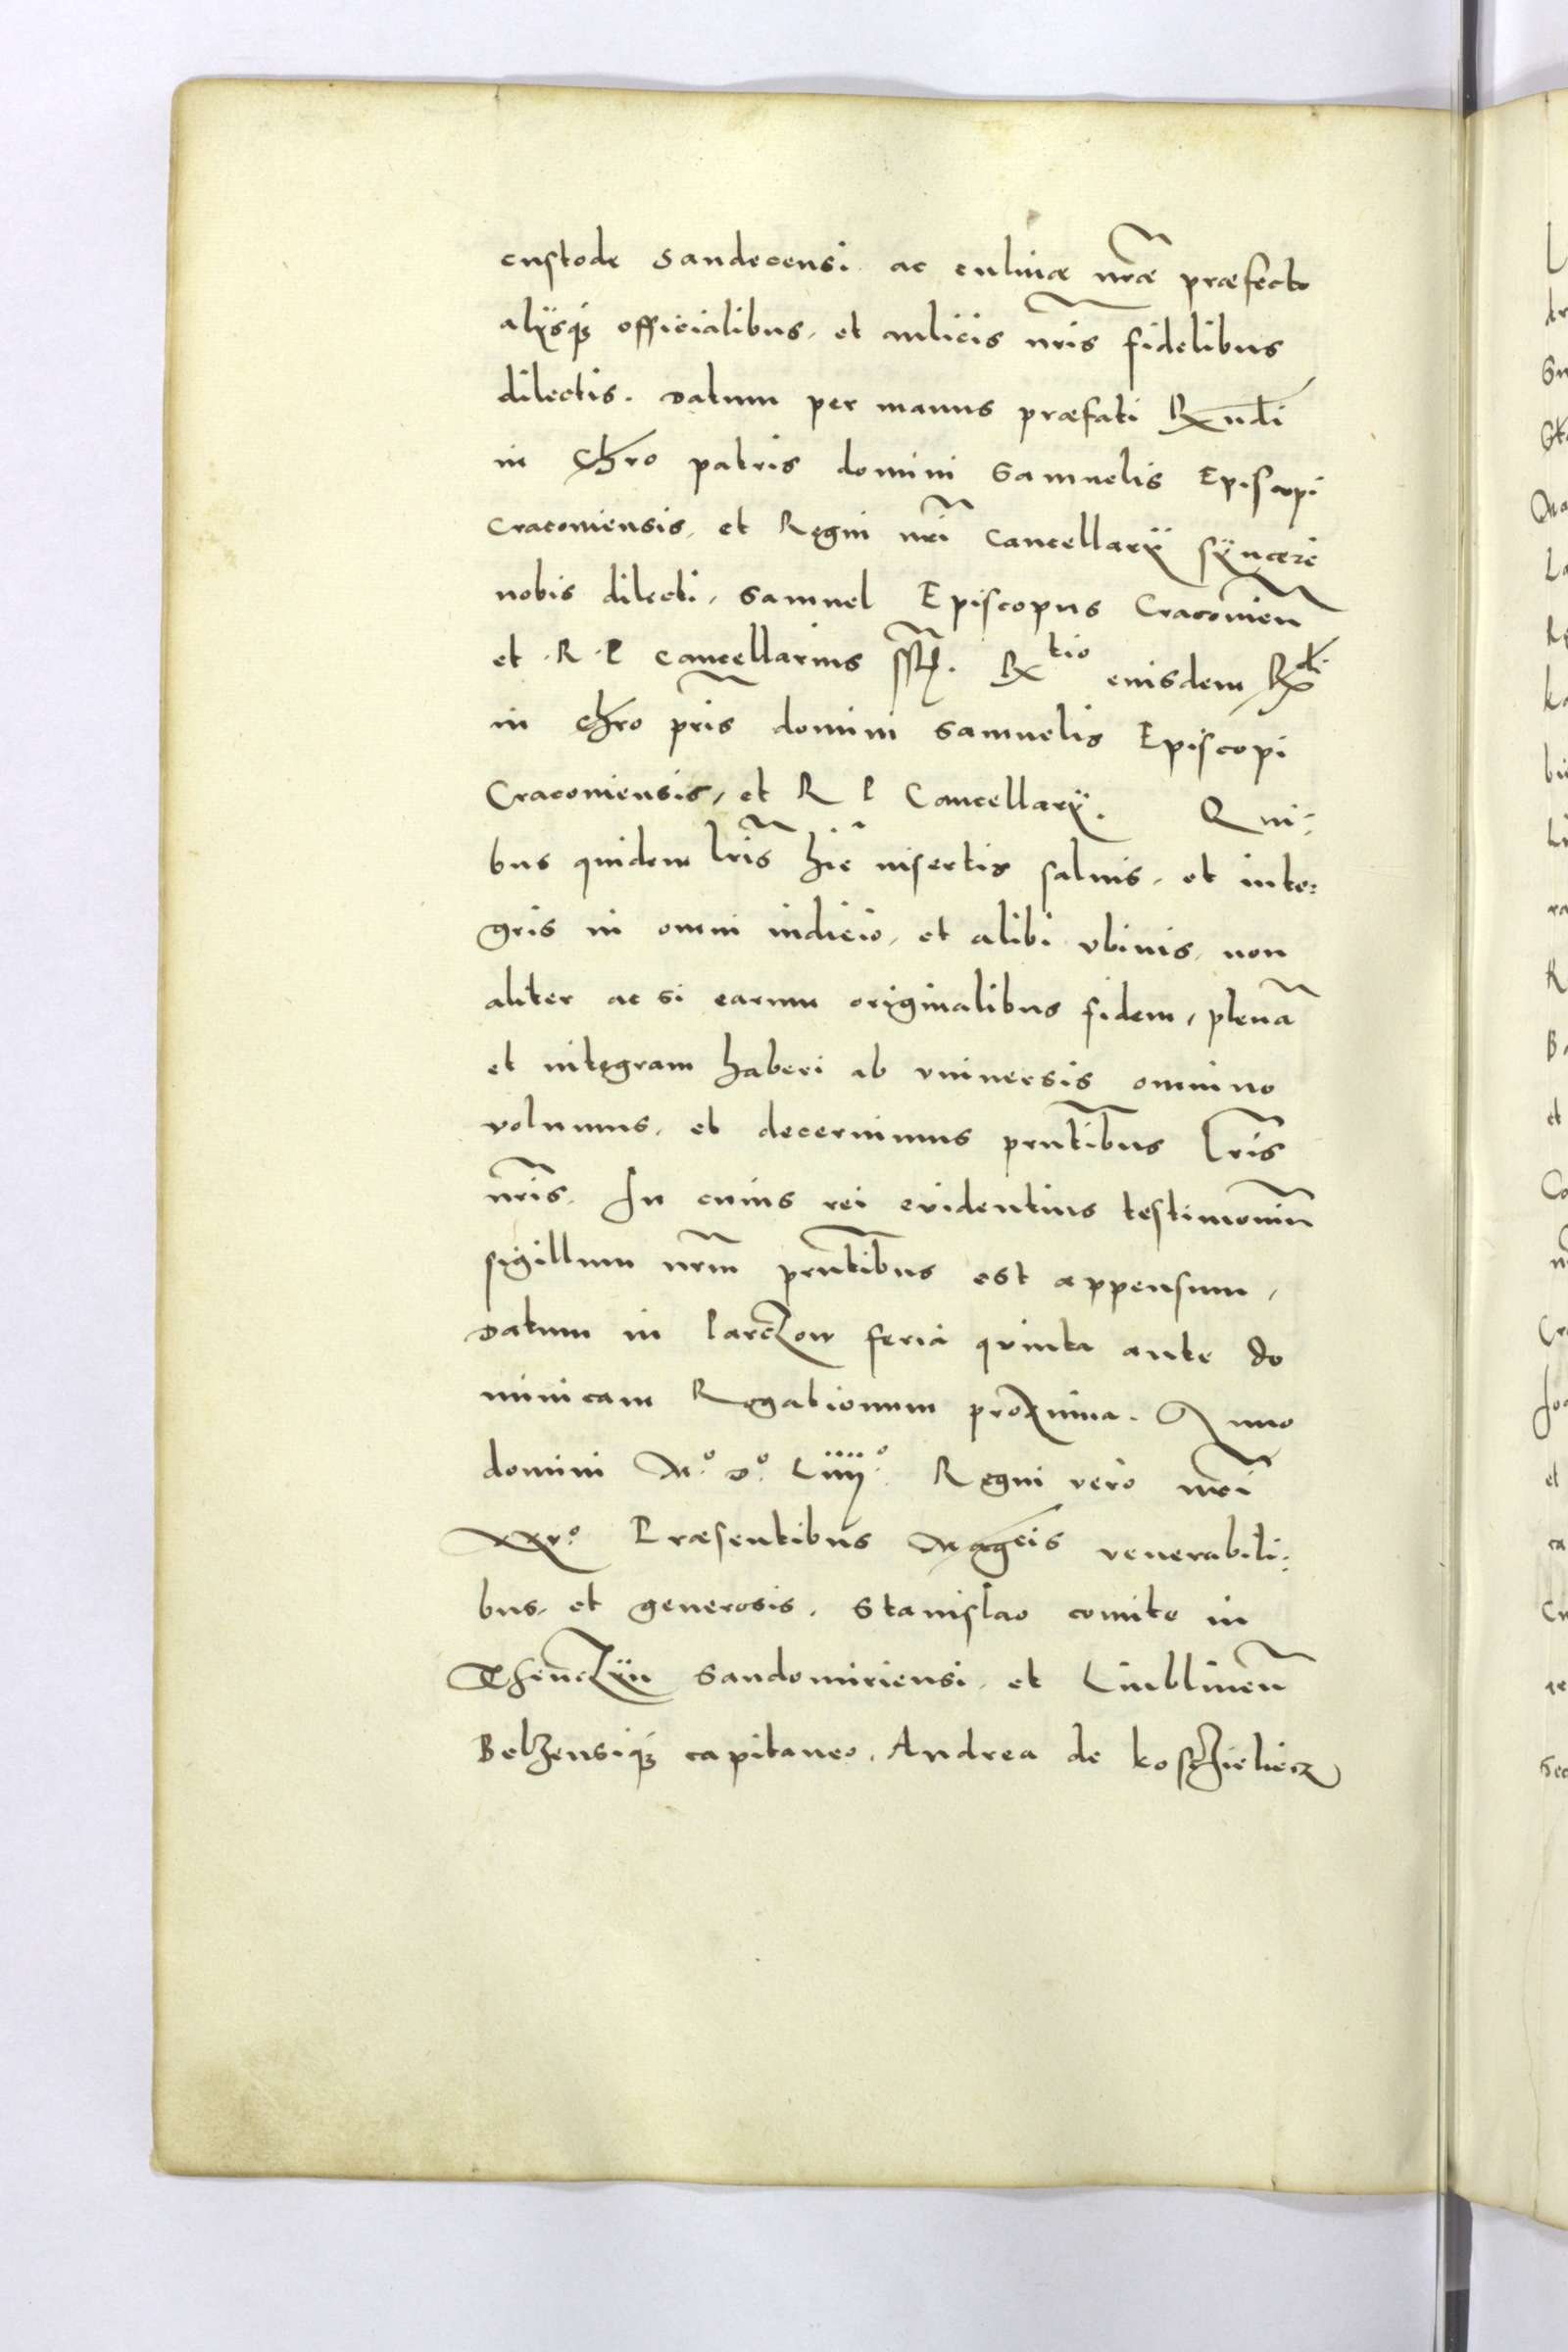 custode Sandecensi ac culinæ nr̃æ præfecto
alijsq₃ officialibus, et aulicis nr̃is fidelibus
dilectis. Datum per manus præfati Rx̃ndi
in Chr̃o patris domini Samuelis Episcopi
Cracouiensis, et Regni nr̃i Cancellarij syncere
nobis dilecti. Samuel Episcopus Cracouien̄
et R. P Cancellarius sst. Rx̃tio eiusdem Rx̃di
in Chr̃o pr̃is domini Samuelis Episcopi
Cracouiensis, et R P Cancellarij. Qui=
bus quidem lr̃is hic insertis saluis, et inte=
gris in omni iudicio, et alibi vbiuis, non
aliter ac si earum originalibus fidem, plenā
et integram haberi ab vniuersis omnino
volumus, et decernimus pn̄tibus lr̃is
nr̃is. In cuius rei euidentius testimoniū
sigillum nr̃m prn̄tibus est appensum,
Datum in Parczow feria quinta ante do
minicam Rogationum proxima. Anno
domini M.º D.º Liiij.º Regni vero nr̃i
xxv.º Præsentibus Mag̃cis venerabili=
bus, et generosis. Stanislao comite in
Thenczÿn Sandomiriensi, et Liublinen̄
Belzensiq₃ capitaneo, Andrea de Koschielecz